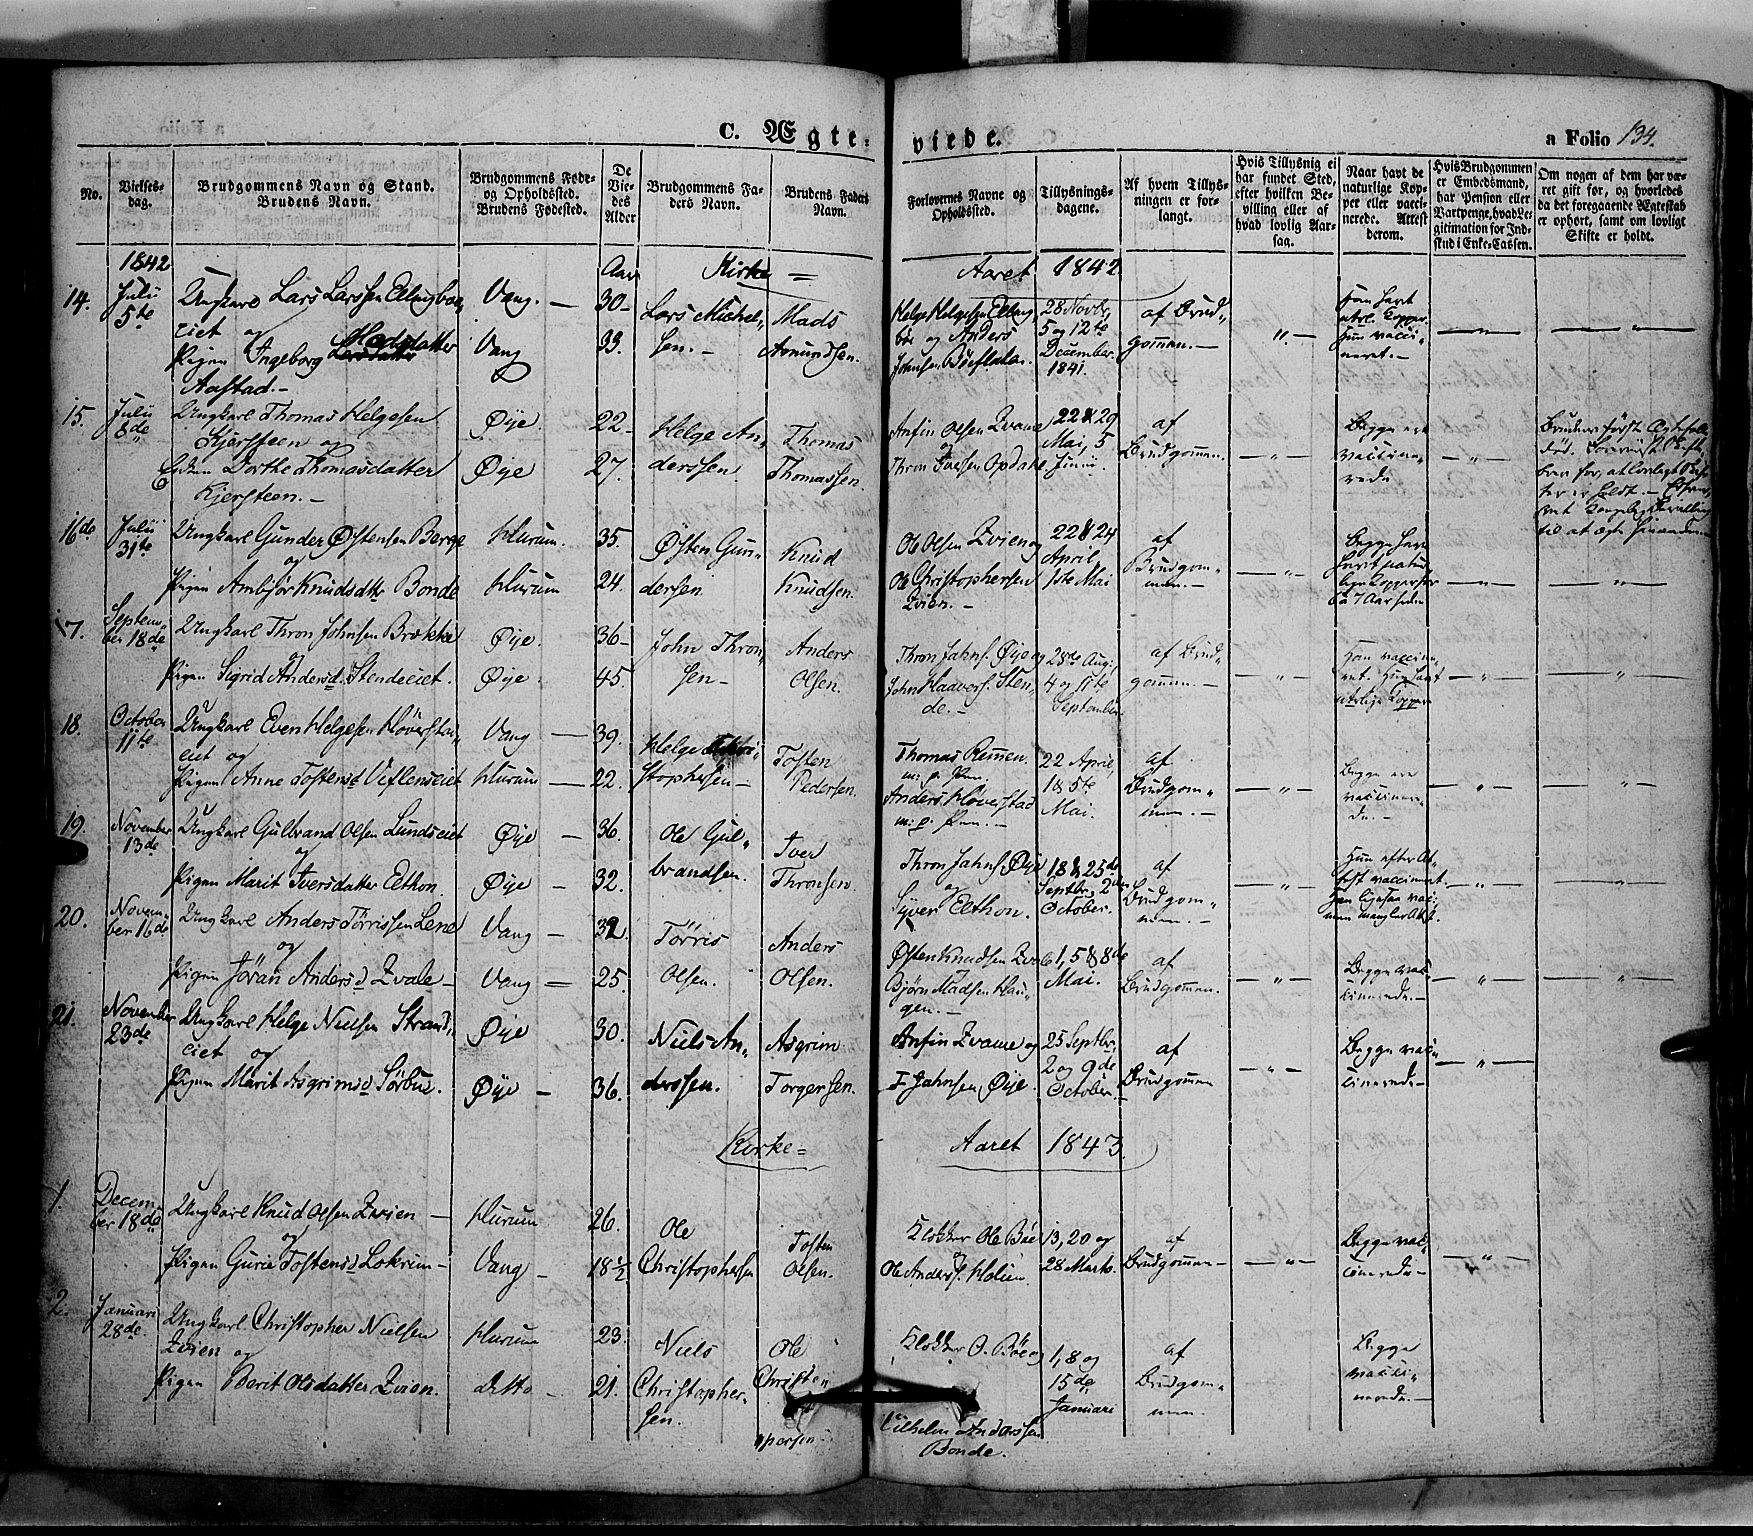 C. Ægte-
viede.
a Folio 134.
No.
Vielses-
dag.
Brudgommens Navn og Stand.
Brudens Navn.
Brudgommens Føde-
og Opholdssted.
Brudens Fødested.
De
Vie-
des
Alder
Brudgommens Fa-
ders Navn.
Brudens Faders
Navn.
Forlovernes Navne og
Opholdssted.
Tillysnings-
dagene.
Af hvem Tillys-
ningen er for-
langt.
Hvis Tillysnig ei
har fundet Sted,
efter hvilken Be-
villing eller af
hvad lovlig Aar-
sag.
Naar havt de
naturlige Kop-
per eller vacci-
nerede. Attest
derom.
Hvis Brudgommen
er Embedsmand,
har Pension eller
Vartpenge, hvad Le-
gitimation for Ind-
skud i Enke-Cassen.
Om nogen af dem har væ-
ret gift før, og hvorledes
da det foregaaende Ægteskab
er ophørt, samt om lovligt
Skifte er holdt.
1842
Aar
Kirke =
Aaret 1842
14. Julii
5te
Ungkarl Lars Larssen Ellingboe-
eiet og
Pigen Ingeborg Madsdatter
Aastad.-
Vang. - 30-
Vang 33.
Lars Michel-
sen.-
Mads
Amundsen.
Helge Helgesen Elling-
boe og Anders
Johnsen Bøeflaten.
28 Novbr,
5 og 12te
December
1841.
af Brud-
gommen.-
Han havt
natrl. Kopper
Hun vacci-
neret.-
15. Julii
8de
Ungkarl Thomas Helgesen
Kjersteen og
Enken Dorthe Thomasdatter
Kjersteen.-
Øije 22-
Øije 27.
Helge An-
derssen.
Thomas
Thomassen.
Anfin Olsen Qvame
og
Thron Iversen Opdahl
22 & 29
Mai, 5
Junii.
af
Brudgommen.
Begge ere
vaccine-
rede
Brudens først Ægtefælle
død.
16de Julii
31te
Ungkarl Gunder Østensen Berge
og
Pigen Ambjør Knudsdtr Bonde
Hurum. 35.
Hurum 24.
Østen Gun-
dersen
Knud
Knudsen.
Ole Olsen Qvien og
Ole Christophersen
Qvien.-
22 & 24
April
1ste Mai
af
Brudgom-
men.-
Begge have
havt natur-
lige Kopper for
ca 7 Aar siden
17. Septem-
ber 18de
Ungkarl Thron Johnsen Brække
og
Pigen Sigrid Andersd. Stendeeiet.
Øije. 36-
Øije. 45.
John Thron-
sen-
Anders
Olsen.
Thron Jahns. Øije og
John Haavers. Sten-
de.-
28de Aug:
4 og 11te
September.
af Brud-
gommen.-
Han vaccine-
ret. Hun havt
natrlige Kopper
18. October
11te
Ungkarl Even Helgesen Høverstad-
eiet og
Pigen Anne Tostensd Veflenseiet
Vang - 39.
Hurum - 22.
Helge Chri-
stophersen-
Tosten
Pedersen.
Thomas Remen
m. p. Pen.
Anders Høverstad
m. p. Pen.-
22 April,
1 & 5te
Mai.
af
Brudgom-
men.-
Begge ere
vaccinere-
de.-
19. November
13de
Ungkarl Gulbrand Olsen Lundseiet
og
Pigen Marit Iversdatter Elthon.
Øije - 36.
Øije - 32.
Ole Gul-
brandsen.
Iver
Thronsen.
Thron Jahns. Øije
og
Syver Elthon.
18 & 25de
Septbr, 2den
October.
af
Brudgom-
men.-
Hun efter At-
test vaccineret.
20. Novem-
ber 16de
Ungkarl Anders Tørrissen Lene
og
Pigen Jøran Andersd Qvale-
Vang - 32.
Vang = 25.
Tørris
Olsen.
Anders
Olsen.
Østen Knudsen Qvale
Bjørn Madsen Hau-
gen.-
1, 5 & 8de
Mai.
af
Brudgommen.
Begge vac-
cinerede.-
21. November
23de
Ungkarl Helge Nielsen Strand-
eiet og
Pigen Marit Asgrimsd Sørbue.
Øije 30.
Øije - 36.
Niels An-
derssen.
Asgrim
Torgersen.
Anfin Qvame og
T Jahnsen Øije.
25 Septbr,
2 og 9de
October.-
af
Brudgommen
Begge vac-
cinerede-
Kirke=
Aaret 1843.
1. Decem-
ber 18de
Ungkarl Knud Olsen Qvien -
og
Pigen Gurie Tostensd Løkrim-
Hurum 26.
Vang - 18½
Ole
Christophersen
Tosten
Olsen.
Klokker Ole Bøe
Ole Anders. Holien
13, 20 og
28 Marts.
af
Brudgommen-
Begge vac-
cinerede-
2. Januari
28de.
Ungkarl Christopher Nielsen
Qvien og
Pigen Berit Olsdatter Qvien.
Hurum 23.
detto - 21.
Niels
Christopher-
sen.
Ole
Christo-
phersen
Klokker O. Bøe og
Vilhelm Anderssen
Bonde.
1, 8 og
15de
Januari
af
Brudgom-
men.
Begge
vacci-
nerede.-